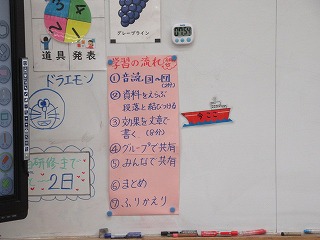 道具
発表
グレープライン
ドラエモン
研修まで
2日
学習の流れ
①音読
②資料をえらぶ
段落と結びつける
③効果を文章で
書く(8分)
④グループで共有
⑤みんなで共有
⑥まとめ
⑦ふりかえり
今ここ